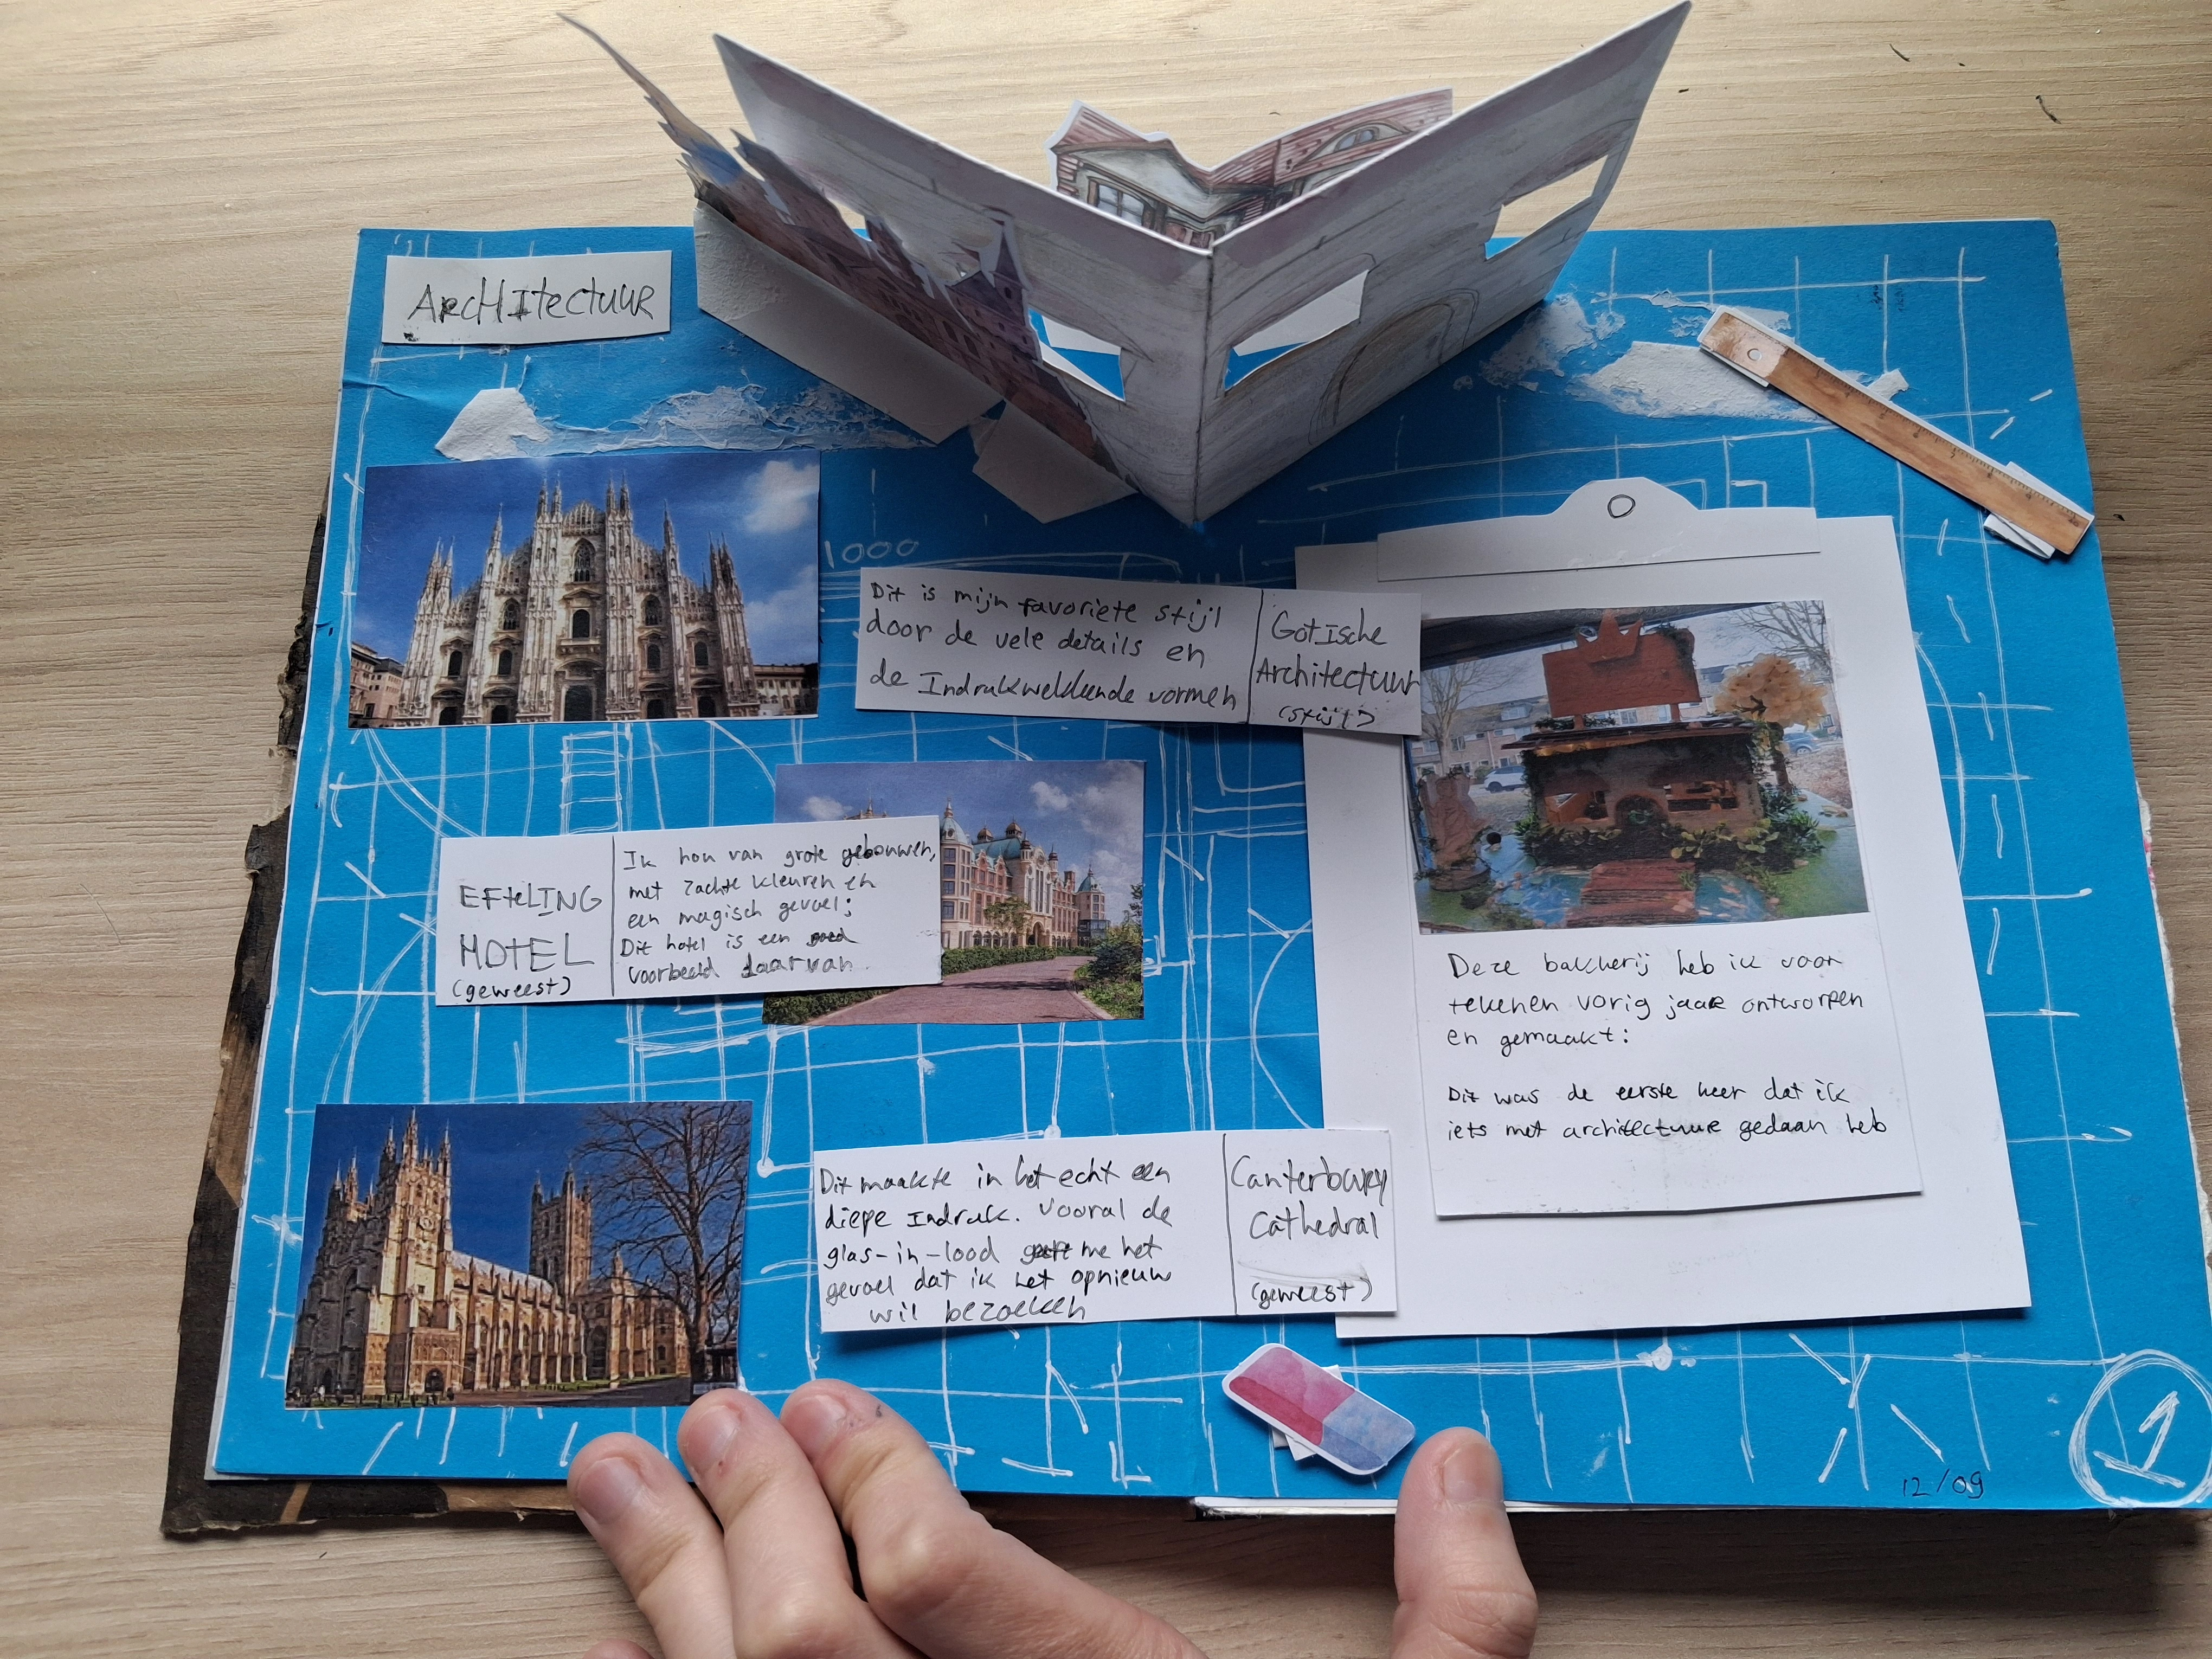 ArcHItectuur
1000
Dit is mijn favoriete stijl
door de vele details en
de Indrukwekkende vormen
Gotische
Architectuur
(stijl)
EFteLING
HOTEL
(geweest)
Ik hou van grote gebouwen,
met zachte kleuren en
een magisch gevoel;
Dit hotel is een goed
voorbeeld daarvan.
Deze bakkerij heb ik voor
tekenen vorig jaar ontworpen
en gemaakt:
Dit was de eerste keer dat ik
iets met architectuur gedaan heb
Dit maakte in het echt een
diepe Indruk. vooral de
glas-in-lood geeft me het
gevoel dat ik het opnieuw
wil bezoeken
Canterbury
Cathedral
(geweest)
12/09
1